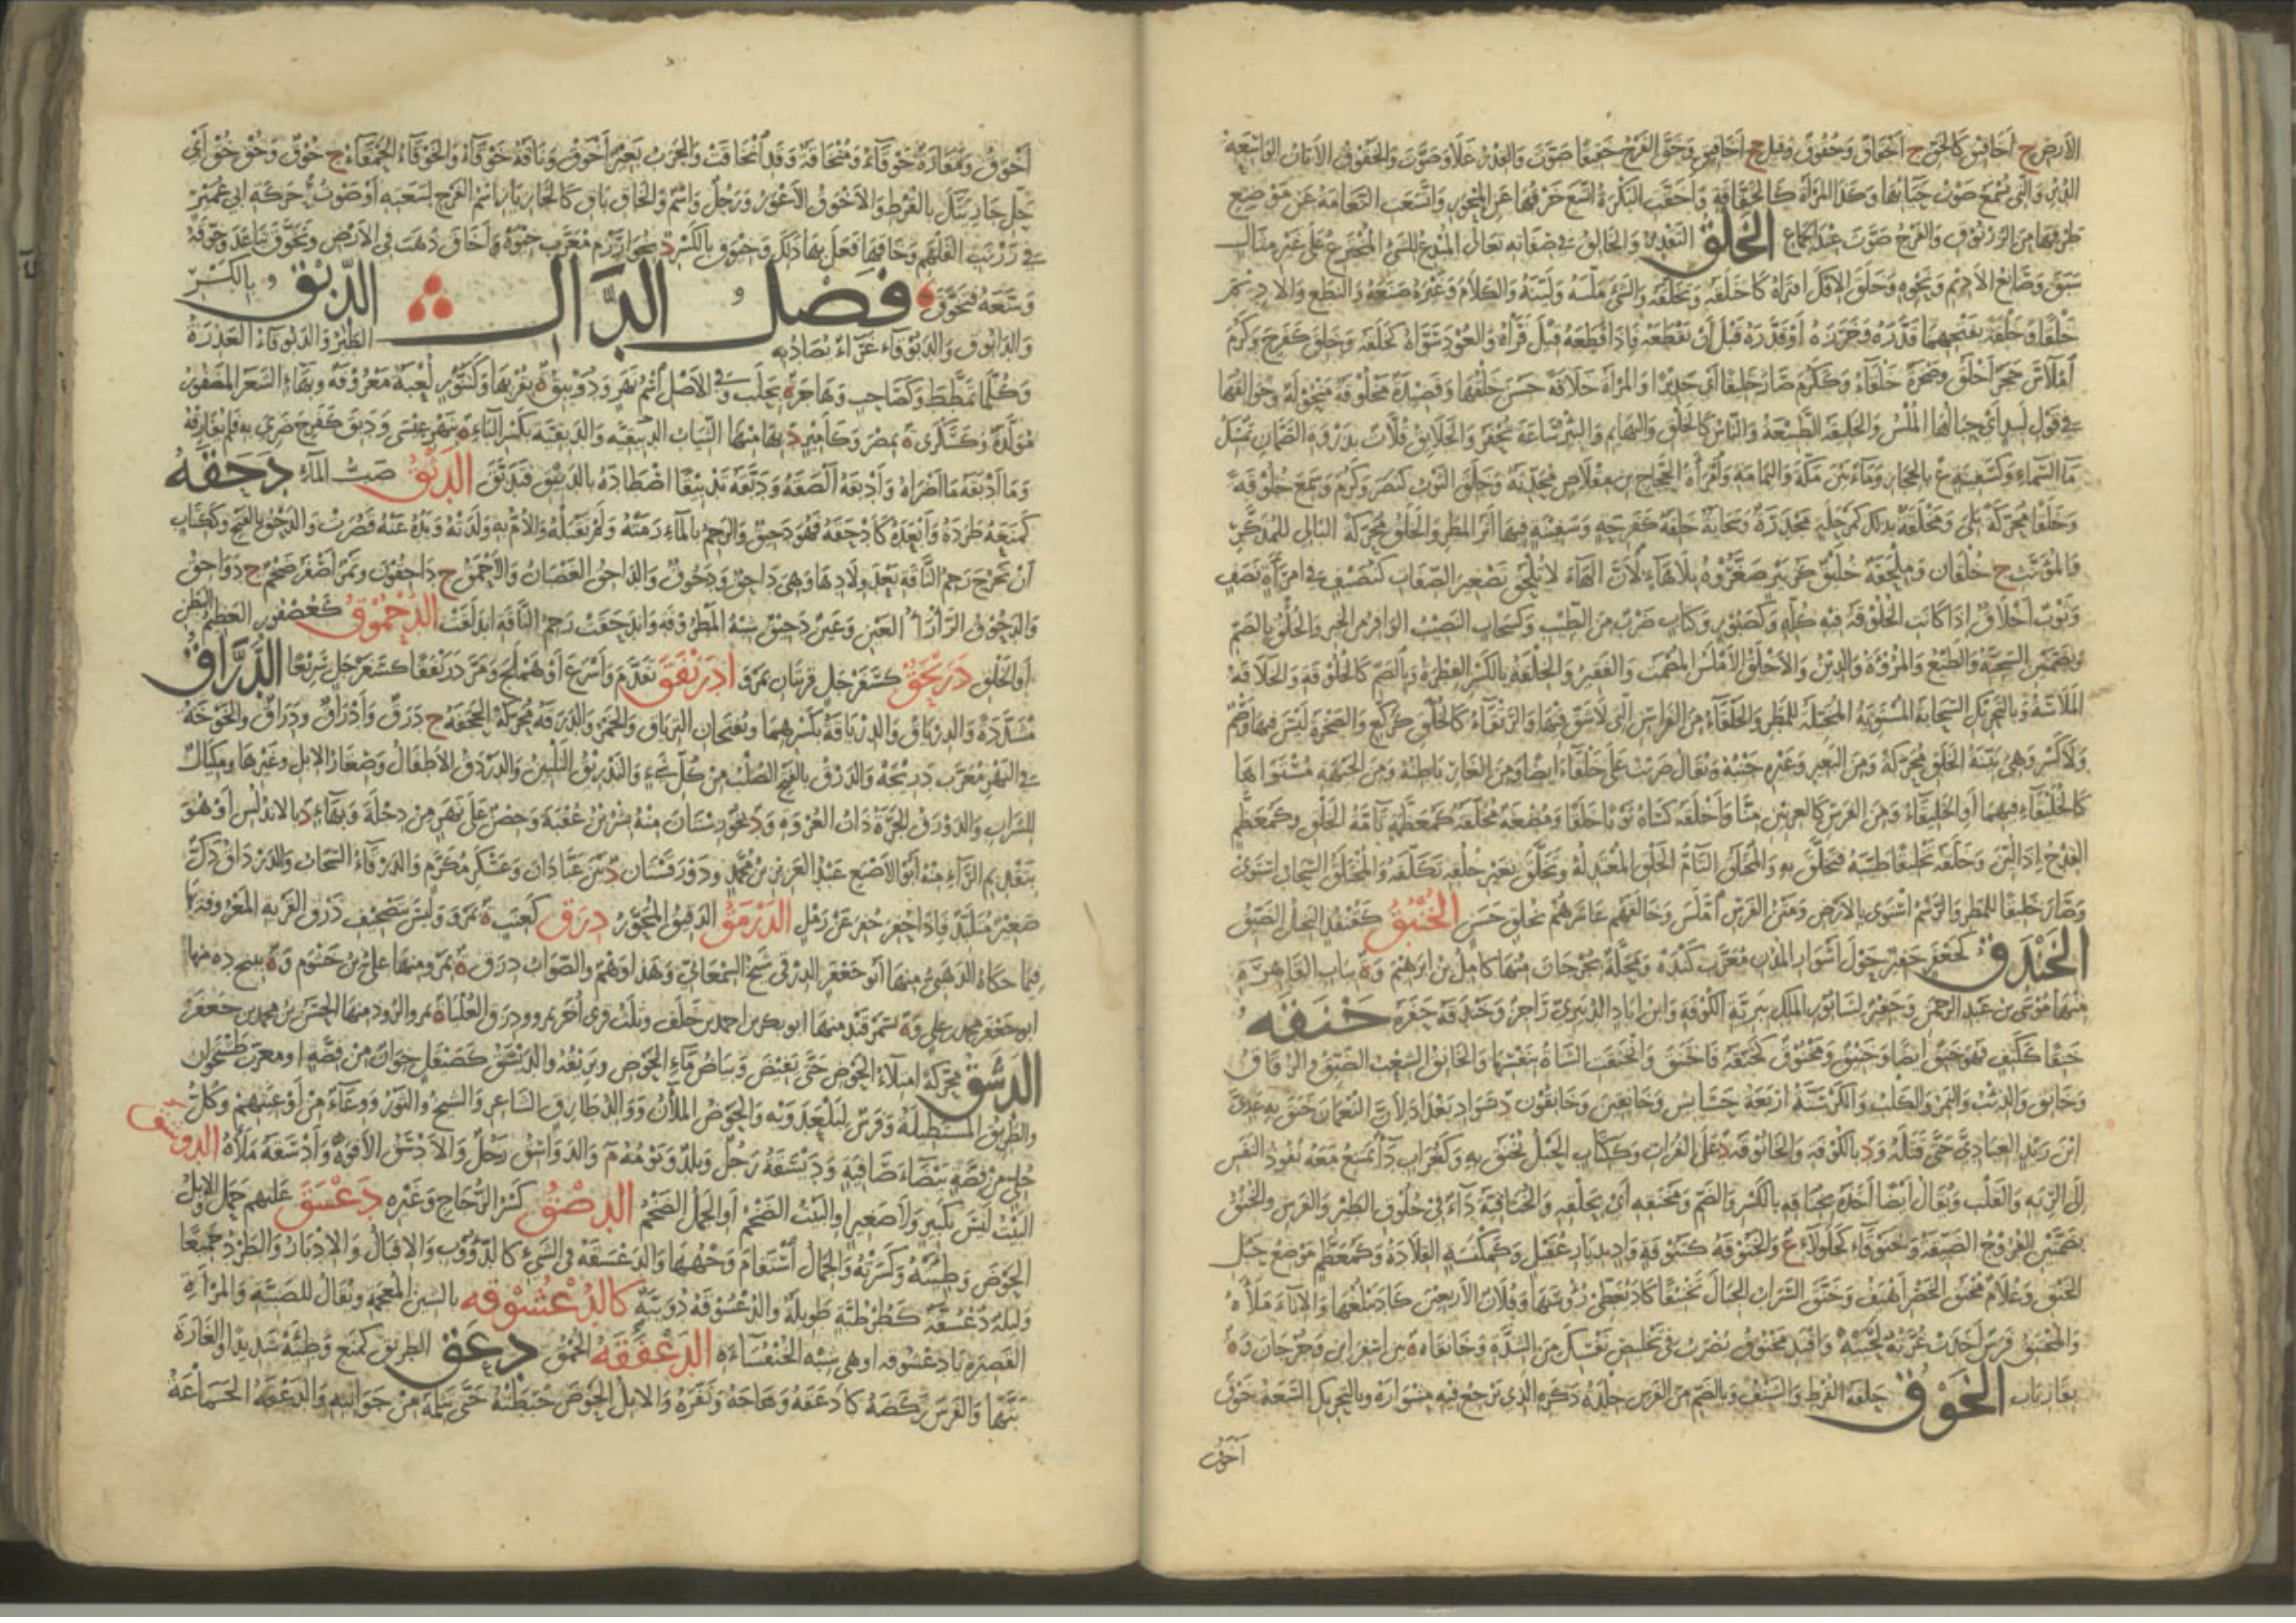 الأرض ج أخاقيق كالخق ج أخقاق وخقوق وقيل ج أخاقيق وخق الفرج خقيقا صوت والقدر غلا وصوت والخقوق الأتان الواسعة
الدبر والتي يسمع صوت حيائها وكذا المرأة كالخقاقة وأخقت البكرة اتسع خرقها عن المحور واتسعت النعامة عن موضع
طرفها من الزرنوق والفرج صوت عند الجماع الخلق التقدير والخالق في صفاته تعالى المبدع للشيء المخترع على غير مثال
سبق وصانع الأديم ونحوه وخلق الإفك افتراه كاختلقه وتخلقه والشيء ملسه ولينه والكلام وغيره صنعه والنطع والأديم
خلقا وخلقة بفتحهما قدره وحزره أو قدره قبل أن يقطعه فإذا قطعه قيل فراه والعود سواه كخلقه وخلق كفرح وكرم
املاس حجر أخلق وصخرة خلقاء وككرم صار خليقا أي جديرا والمرأة خلاقة حسن خلقها وقصيدة مخلوقة منحولة وخوالقها
في قول لبيد أي جبالها الملس والخليقة الطبيعة والناس كالخلق والبهائم والبئر ساعة تحفر والخلائق قلات بذروة الصمان تمسك
ماء السماء وكسفينة ع بالحجاز وماء بين مكة واليمامة وامرأة الحجاج بن مقلاص محدثة وخلق الثوب كنصر وكرم وسمع خلوقة
وخلقا محركة بلي ومخلقة بذلك كمرحلة مجدرة وسحابة خلقة كفرحة وسفينة فيها أثر المطر والخلق محركة البالي للمذكر
والمؤنث ج خلقان وملحفة خليق كزبير صغروه بلا هاء لأن الهاء لا تلحق تصغير الصفات كنصيف في امرأة نصف
وثوب أخلاق إذا كانت الخلوقة فيه كله وكصبور وكتاب ضرب من الطيب وكسحاب النصيب الوافر من الخير والخلق بالضم
وبضمتين السجية والطبع والمروءة والدين والأخلق الأملس المصمت والفقير والخلقة بالكسر الفطرة وبالضم كالخلوقة والخلاقة
الملاسة وبالتحريك السحابة المستوية المخيلة للمطر والخلقاء من الفراسن التي لا شق فيها والرتقاء كالخلق كركع والصخرة ليس فيها وصم
ولا كسر وهي بينة الخلق محركة ومن البعير وغيره جنبه ويقال ضربت على خلقاء أيضا ومن الغار باطنه ومن الجبهة مستواها
كالخليقاء فيهما أو الخليقاء ومن الفرس كالعرنين منا وأخلقه كساه ثوبا خلقا ومضغة مخلقة كمعظمة تامة الخلق وكمعظم
القدح إذا لين وخلقه تخليقا طيبه فتخلق به والمختلق التام الخلق المعتدله وتخلق بغير خلقه تكلفه واخلولق السحاب استوى
وصار خليقا للمطر والرسم استوى بالأرض ومتن الفرس املس وخالقهم عاشرهم بخلق حسن الخنبق كقنفذ البخيل الضيق
الخندق كجعفر حفير حول أسوار المدن معرب كنده ومحلة بجرجان منها كامل بن إبراهيم وة بباب القاهرة
منها موسى بن عبد الرحمن وحفير لسابور الملك ببرية الكوفة وابن إياد الدبيري راجز وخندقه حفره خنقه
خنقا ككتف فهو خنق أيضا وخنيق ومخنوق كخنقه فاختنق وانخنقت الشاة بنفسها والخانق الشعب الضيق والزقاق
وخانق والذئب والنمر والكلب والكرسنة أربعة حشائش وخانقين وخانقون د بسواد بغداد لأن النعمان خنق به عدي
ابن زيد العبادي حتى قتله ود بالكوفة والخانوقة د على الفرات وككتاب الحبل يخنق به وكغراب داء يمتنع معه نفوذ النفس
إلى الرئة والقلب ويقال أيضا أخذه بخناقه بالكسر والضم ومخنقه أي بحلقه والخناقية داء في حلوق الطير والفرس والخنق
بضمتين الفروج الضيقة وخنوقاء كجلولاء ع والخنوقة كتنوفة واد بديار عقيل وكمكنسة القلادة وكمعظم موضع حبل
الخنق وغلام مخنق الخصر أهيف وخنق السراب الجبال تخنيقا كاد يغطي رؤوسها وفلان الأربعين كاد يبلغها والإناء ملأه
والمخنق فرس أخذت غرته لحييه وافتد مخنوق يضرب في تخليص نفسك من الشدة وخانقاه ة بين أسفراين وجرجان وة
بفارياب الخوق حلقة القرط والشنف وبالضم من الفرس جلدة ذكره الذي ترجع فيه مشواره وبالتحريك السعة خوق
أخوق
أخوق ومفازة خوقاء ومنخاقة وقد انخاقت والجرب بعير أخوق وناقة خوقاء والخوقاء الحمقاء ج خوق وخق خق أي
حل جاريتك بالقرط والأخوق الأعور ورجل واسم والخاق باق كالخاز باز اسم الفرج لسعته أو صوت حركة أبي عمير
في زرنب الفلهم وخاقها فعل بها ذلك وخيوق بالكسر د بخوارزم معرب خيوه وأخاق ذهب في الأرض وتخوق تباعد وخوقه
وسعه فتخوق فصل الدال الدبق بالكسر
والدابوق والدبوقاء غراء يصاد به الطير والدبوقاء العذرة
وكلما تمطط وكصاحب وهاجر ة بحلب وفي الأصل اسم نهر ودويبق ة بقربها وكتنور لعبة معروفة وبهاء الشعر المضفور
مولدة وكسكرى ة بمصر وكأمير د بها منها الثياب الدبيقية والدبقية بكسر الباء ة بنهر عيسى ودبق كفرح ضري به فلم يفارقه
وما أدبقه ما أضراه وأدبقه ألصقه ودبقه تدبيقا اصطاده بالدبق فتدبق الدثق صب الماء دحقه
كمنعه طرده وأبعده كأدحقه فهو دحيق والرحم بالماء رمته ولم تقبله والأم به ولدته ويده عنه قصرت والدحق بالفتح وككتاب
أن تخرج رحم الناقة بعد ولادها وهي داحق ودحوق والداحق الغضبان والأحمق ج داحقون وتمر أصفر ضخم ج دواحق
والدحوق الرأراء العين وعين دحيق شبه المطروفة واندحقت رحم الناقة اندلقت الدحموق كعصفور العظيم البطن
أو الخلق دربحق كسفرجل قريتان بمرو ادرنفق تقدم وأسرع أو هملج ومر درنفقا كسفرجل سريعا الدراق
مشددة والدرياق والدرياقة بكسرهما ويفتحان الترياق والخمر والدرقة محركة الحجفة ج درق وأدراق ودراق والخوخة
في النهر معرب دريجه والدرق بالفتح الصلب من كل شيء والتدريق التليين والدردق الأطفال وصغار الإبل وغيرها ومكيال
للشراب والدورق الجرة ذات العروة ود بخوزستان منه بشر بن عقبة وحصن على نهر من دجلة وبهاء د بالأندلس أو هو
بتقديم الراء منه أبو الأصبغ عبد العزيز بن محمد ودورقستان د بين عبادان وعسكر مكرم والدرقاء السحاب والدرداق دك
صغير متلبد فإذا حفر حفر عن رمل الدرمق الدقيق المحور درق كعنب ة بمرو وليس بتصحيف ذرق القرية المعروفة بها
فيما حكاه الذهبي منها أبو جعفر الدرقي شيخ السمعاني وهذا وهم والصواب درق ة بمرو منها علي بن خشرم وة بپنج ده منها
أبو جعفر محمد بن علي وة بسمرقند منها أبو بكر بن أحمد بن خلف وثلث قرى أخر بمرو ودرق العليا ة بمرو الروذ منها الحسن بن محمد بن جعفر
الدسق محركة امتلاء الحوض حتى يفيض وبياض ماء الحوض وبريقه والديسق كصيقل خوان من فضة أو معرب طشتخوان
والطريق المستطيلة وفرس لبلعدوية والحوض الملآن والد طارق الشاعر والشيخ والنور ووعاء من أوعيتهم وكل
حلي من فضة بيضاء صافية وديسقة رجل وبلد ويوم م والدواسق رجل والأدسق الأفوه وأدسقه ملأه الدوشق
البيت ليس بكبير ولا صغير أو البيت الضخم أو الجمل الضخم الدصق كسر الزجاج وغيره دعسق عليهم حمل والإبل
الحوض وطئته وكسرته والجمال استقام وجهها والدعسقة في الشيء كالدؤوب والإقبال والإدبار والطرد جميعا
وليلة دعسقة كطرطبة طويلة والدعسوقة دويبة كالدعشوقة بالشين المعجمة ويقال للصبية والمرأة
القصيرة يا دعشوقة أو هي شبه الخنفساء ة الدعفقة الحمق دعق الطريق كمنع وطئه شديدا والغارة
بثها والفرس ركضه كأدعقه وهاجه ونفره والإبل الحوض خبطته حتى يثلم من جوانبه والدعقة الجماعة